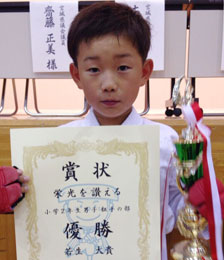 宮城県議会議員
齋藤正美様
宮城県
賞状
栄光を讃える
小学2年生男子組手の部
優勝
若生大貴